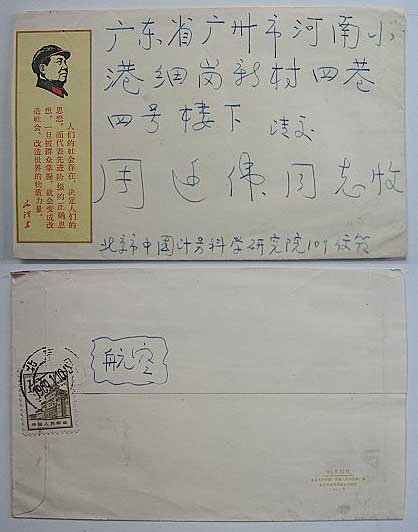 广东省广州市河南小
港细岗新村四巷
四号楼下 请交
周 伟同志收
北京市中国 科学研究院109信箱
人们的社会存在，决定人们的
思想。而代表先进阶级的正确思
想，一旦被群众掌握，就会变成改
造社会、改造世界的物质力量。
毛泽东
航空
中国人民邮政